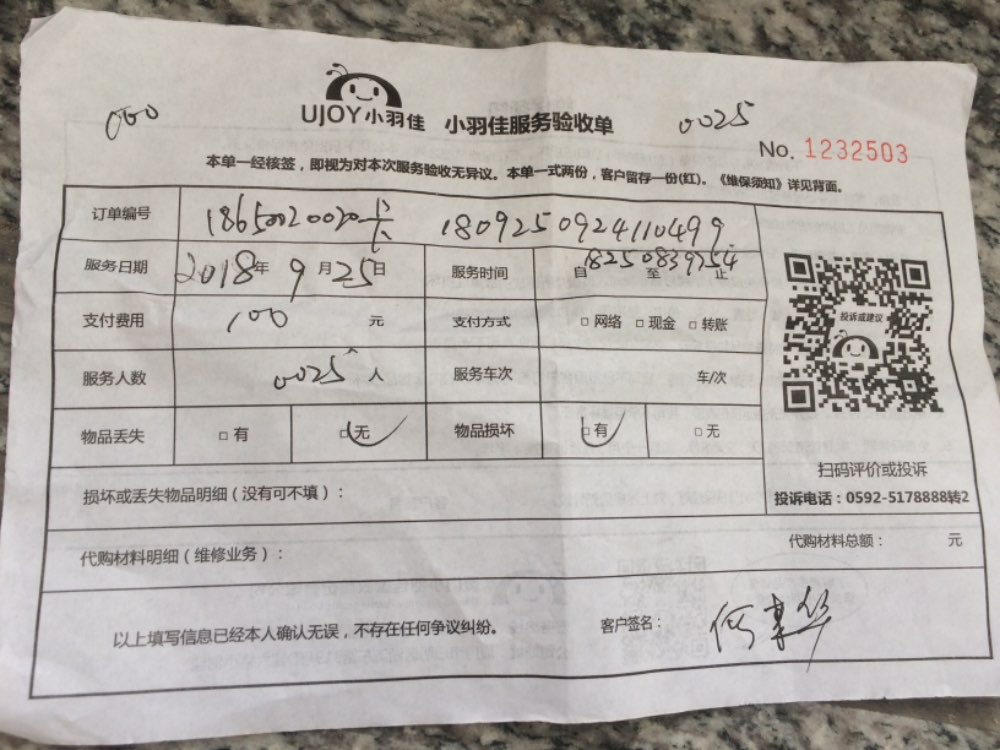 000
UJOY小羽佳 小羽佳服务验收单
0025
No. 1232503
本单一经核签，即视为对本次服务验收无异议。本单一式两份，客户留存一份(红)。《维保须知》详见背面。
订单编号 18650020020卡 1809250924110499
服务日期 2018年 9月25日 服务时间 自 至 止 18250839754
支付费用 100 元 支付方式 □ 网络 □ 现金 □ 转账
投诉或建议
服务人数 0025 人 服务车次 车/次
物品丢失 □ 有 □ 无 物品损坏 □ 有 □ 无
扫码评价或投诉
损坏或丢失物品明细（没有可不填）：
投诉电话：0592-5178888转2
代购材料明细（维修业务）：
代购材料总额： 元
以上填写信息已经本人确认无误，不存在任何争议纠纷。 客户签名：